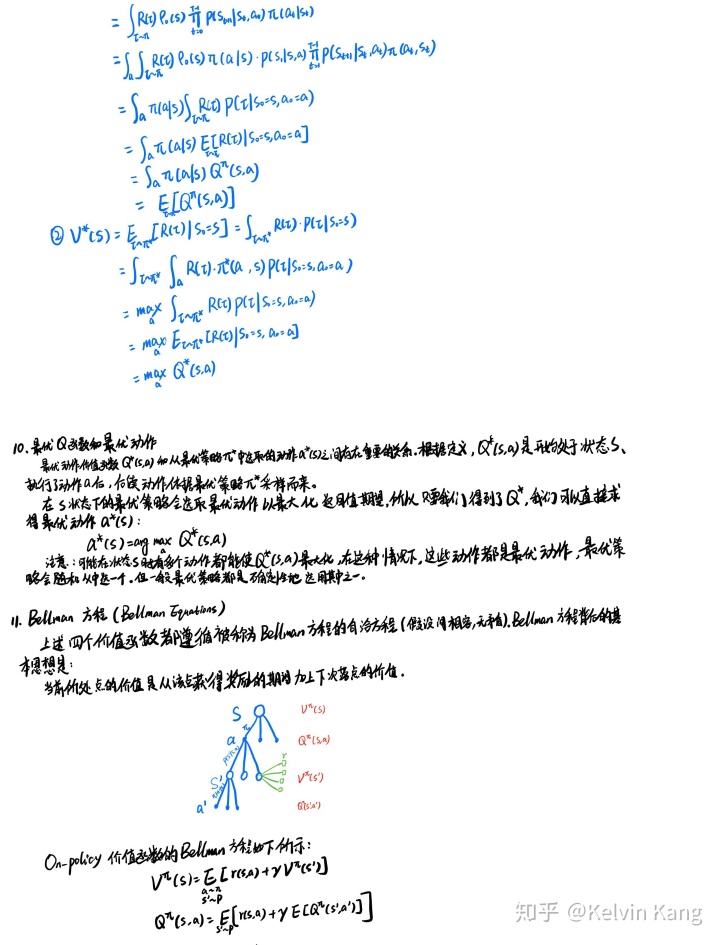 = ∫_{τ~π} R(τ) ρ₀(s) ∏_{t=0}^{T-1} P(s_{t+1}|s_t,a_t) π(a_t|s_t)
= ∫_a ∫_{τ~π} R(τ) ρ₀(s) π(a|s)·P(s₁|s,a) ∏_{t=1}^{T-1} P(s_{t+1}|s_t,a_t) π(a_t,s_t)
= ∫_a π(a|s) ∫_{τ~π} R(τ) P(τ|s₀=s,a₀=a)
= ∫_a π(a|s) E_{τ~π}[R(τ)|s₀=s,a₀=a]
= ∫_a π(a|s) Q^π(s,a)
= E_{a~π}[Q^π(s,a)]
② V*(s) = E_{τ~π*}[R(τ)|s₀=s] = ∫_{τ~π*} R(τ)·P(τ|s₀=s)
= ∫_{τ~π*} ∫_a R(τ)·π*(a,s) P(τ|s₀=s,a₀=a)
= max_a ∫_{τ~π*} R(τ) P(τ|s₀=s,a₀=a)
= max_a E_{τ~π*}[R(τ)|s₀=s,a₀=a]
= max_a Q*(s,a)
10. 最优Q函数和最优动作
最优动作价值函数 Q*(s,a) 和从最优策略π*中选取的动作 a*(s)之间存在重要的关系. 根据定义, Q*(s,a)是开始处于状态S、
执行了动作a后, 后续动作依据最优策略π*采样而来.
在S状态下的最优策略会选取最优动作以最大化返回值期望, 所以只要我们得到了Q*, 我们可以直接求
得最优动作 a*(s):
a*(s) = arg max_a Q*(s,a)
注意: 可能在状态S时有多个动作都能使Q*(s,a)最大化, 在这种情况下, 这些动作都是最优动作, 最优策
略会随机从中选一个. 但一般最优策略都是确定性地选用其中之一.
11. Bellman 方程 (Bellman Equations)
上述四个价值函数都遵循被称为Bellman方程的自洽方程(假设间相容,无矛盾). Bellman方程背后的基
本思想是:
当前所处点的价值是从该点获得奖励的期望加上下次落点的价值.
S V^π(s)
π
a Q^π(s,a)
r
S' V^π(s')
a' Q(s',a')
On-policy 价值函数的Bellman方程如下所示:
V^π(s) = E_{a~π, s'~P}[r(s,a) + γ V^π(s')]
Q^π(s,a) = E_{s'~P}[r(s,a) + γ E[Q^π(s',a')]]
知乎 @Kelvin Kang